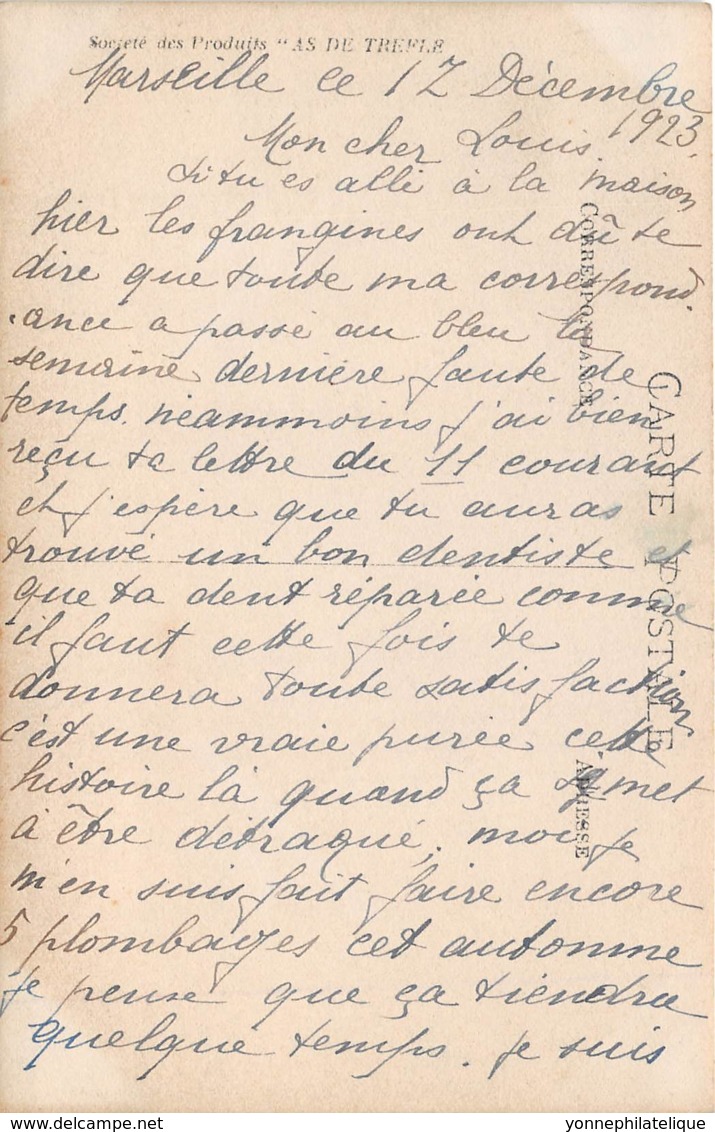 Société des Produits "AS DE TREFLE
Marseille ce 17 Décembre
1923.
Mon cher Louis.
si tu es allé à la maison
hier les frangines ont dû te
dire que toute ma correspond.
ance a passé au bleu la
semaine dernière faute de
temps. néammoins j'ai bien
reçu ta lettre du 11 courant
et j'espère que tu auras
trouvé un bon dentiste et
que ta dent réparée comme
il faut cette fois te
donnera toute satisfaction
c'est une vraie purée cette
histoire là quand ça se met
à être détraqué. moi je
m'en suis fait faire encore
5 plombages cet automne
je pense que ça tiendra
quelque temps. je suis
CARTE POSTALE
CORRESPONDANCE
ADRESSE
delcampe.net
yonnephilatelic@yahoo.com